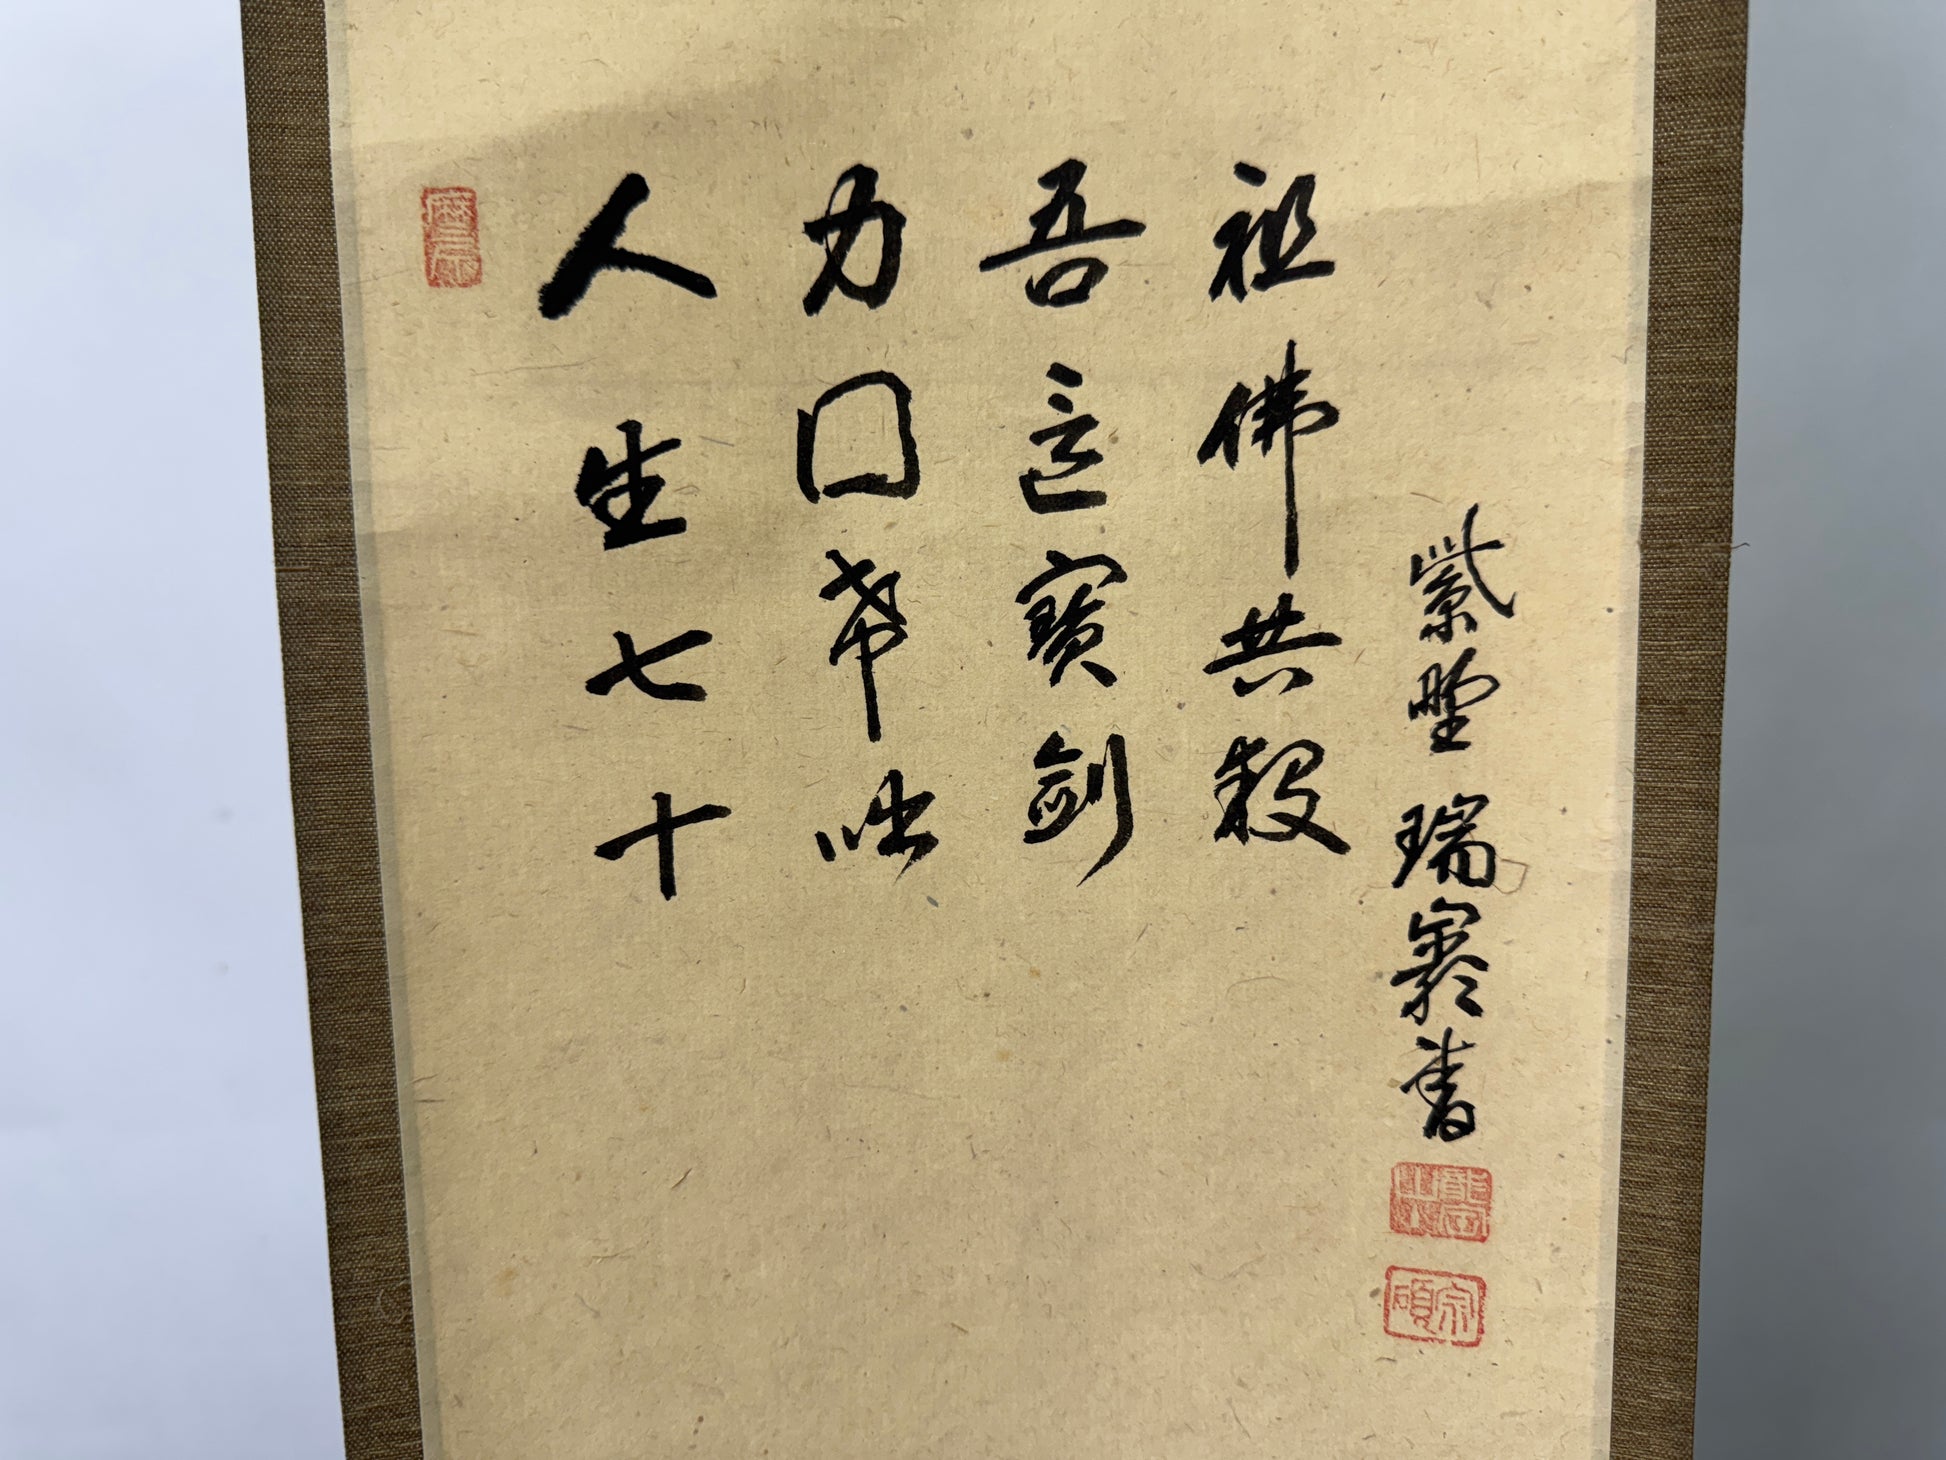 人生七十
力囗希咄
吾這寶劍
祖佛共殺
紫野 瑞巖書
宗碩